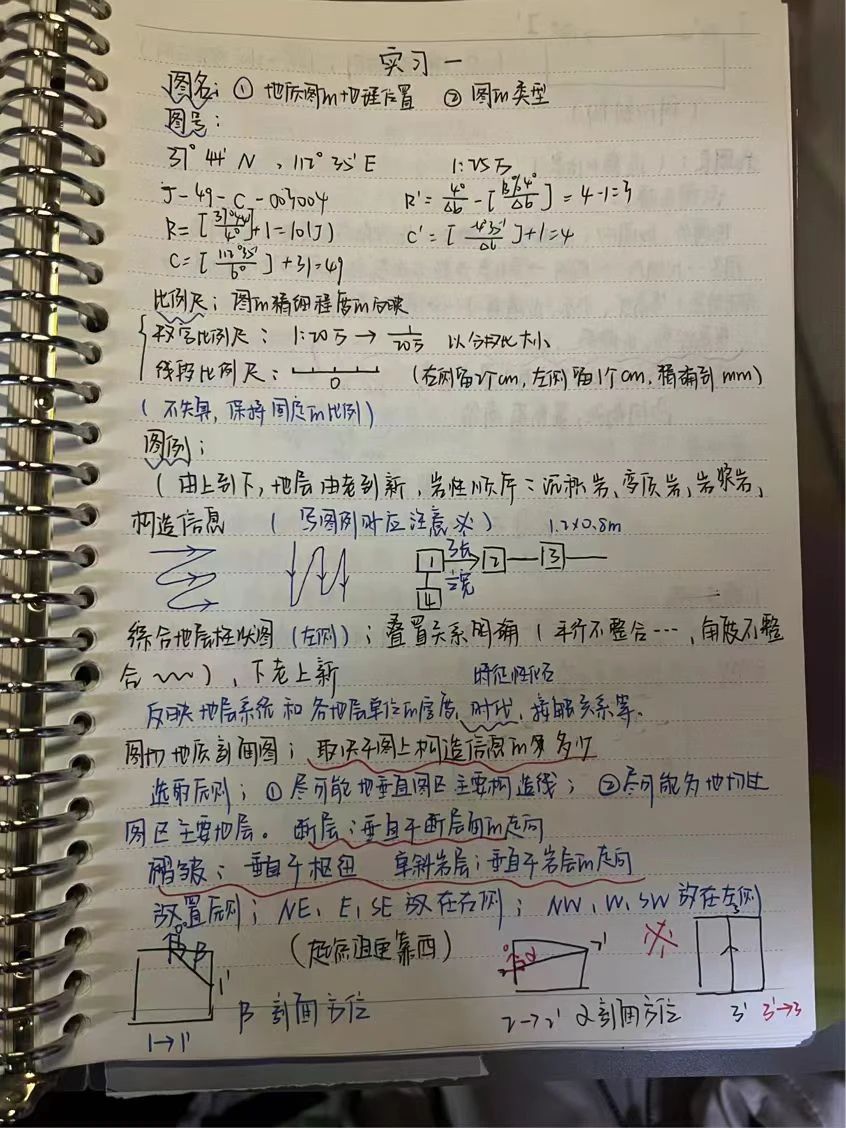 实习一
图名：① 地质图的地理位置 ② 图的类型
图号：
37° 44' N ，112° 35' E 1:25万
J - 49 - C - 003004 R' = 4°/Δb - [37°44'/4°/Δb] = 4-1=3
R = [37°44'/4°]+1=10(J) C' = [4°35'/Δb]+1=4
C = [112°35'/6°]+31=49
比例尺：图的精细程度的反映
数字比例尺：1:20万 → 1/20万 以分数比大小
线段比例尺： 0 (右侧留2个cm, 左侧留1个cm, 精确到mm)
( 不失真, 保持固定的比例)
图例：
( 由上到下, 地层由老到新, 岩性顺序：沉积岩、变质岩、岩浆岩、
构造信息 ( 写图例时应注意 ) 1.2×0.8m
1 2 3
4
综合地层柱状图 (左侧)；叠置关系明确 ( 平行不整合 ---, 角度不整
合 ～～ ) , 下老上新 特征性化石
反映地层系统和各地层单位的厚度、时代、接触关系等.
图切地质剖面图；取决于图上构造信息的多少
选取原则；① 尽可能地垂直图区主要构造线；②尽可能多地切过
图区主要地层。 断层：垂直于断层面的走向
褶皱；垂直于枢纽 单斜岩层；垂直于岩层的走向
放置原则；NE, E, SE 放在右侧；NW, W, SW 放在左侧
(起点更靠西)
β 1' 2 α 2' 3
1→1' β 剖面方位 2→2' α 剖面方位 3' 3'→3